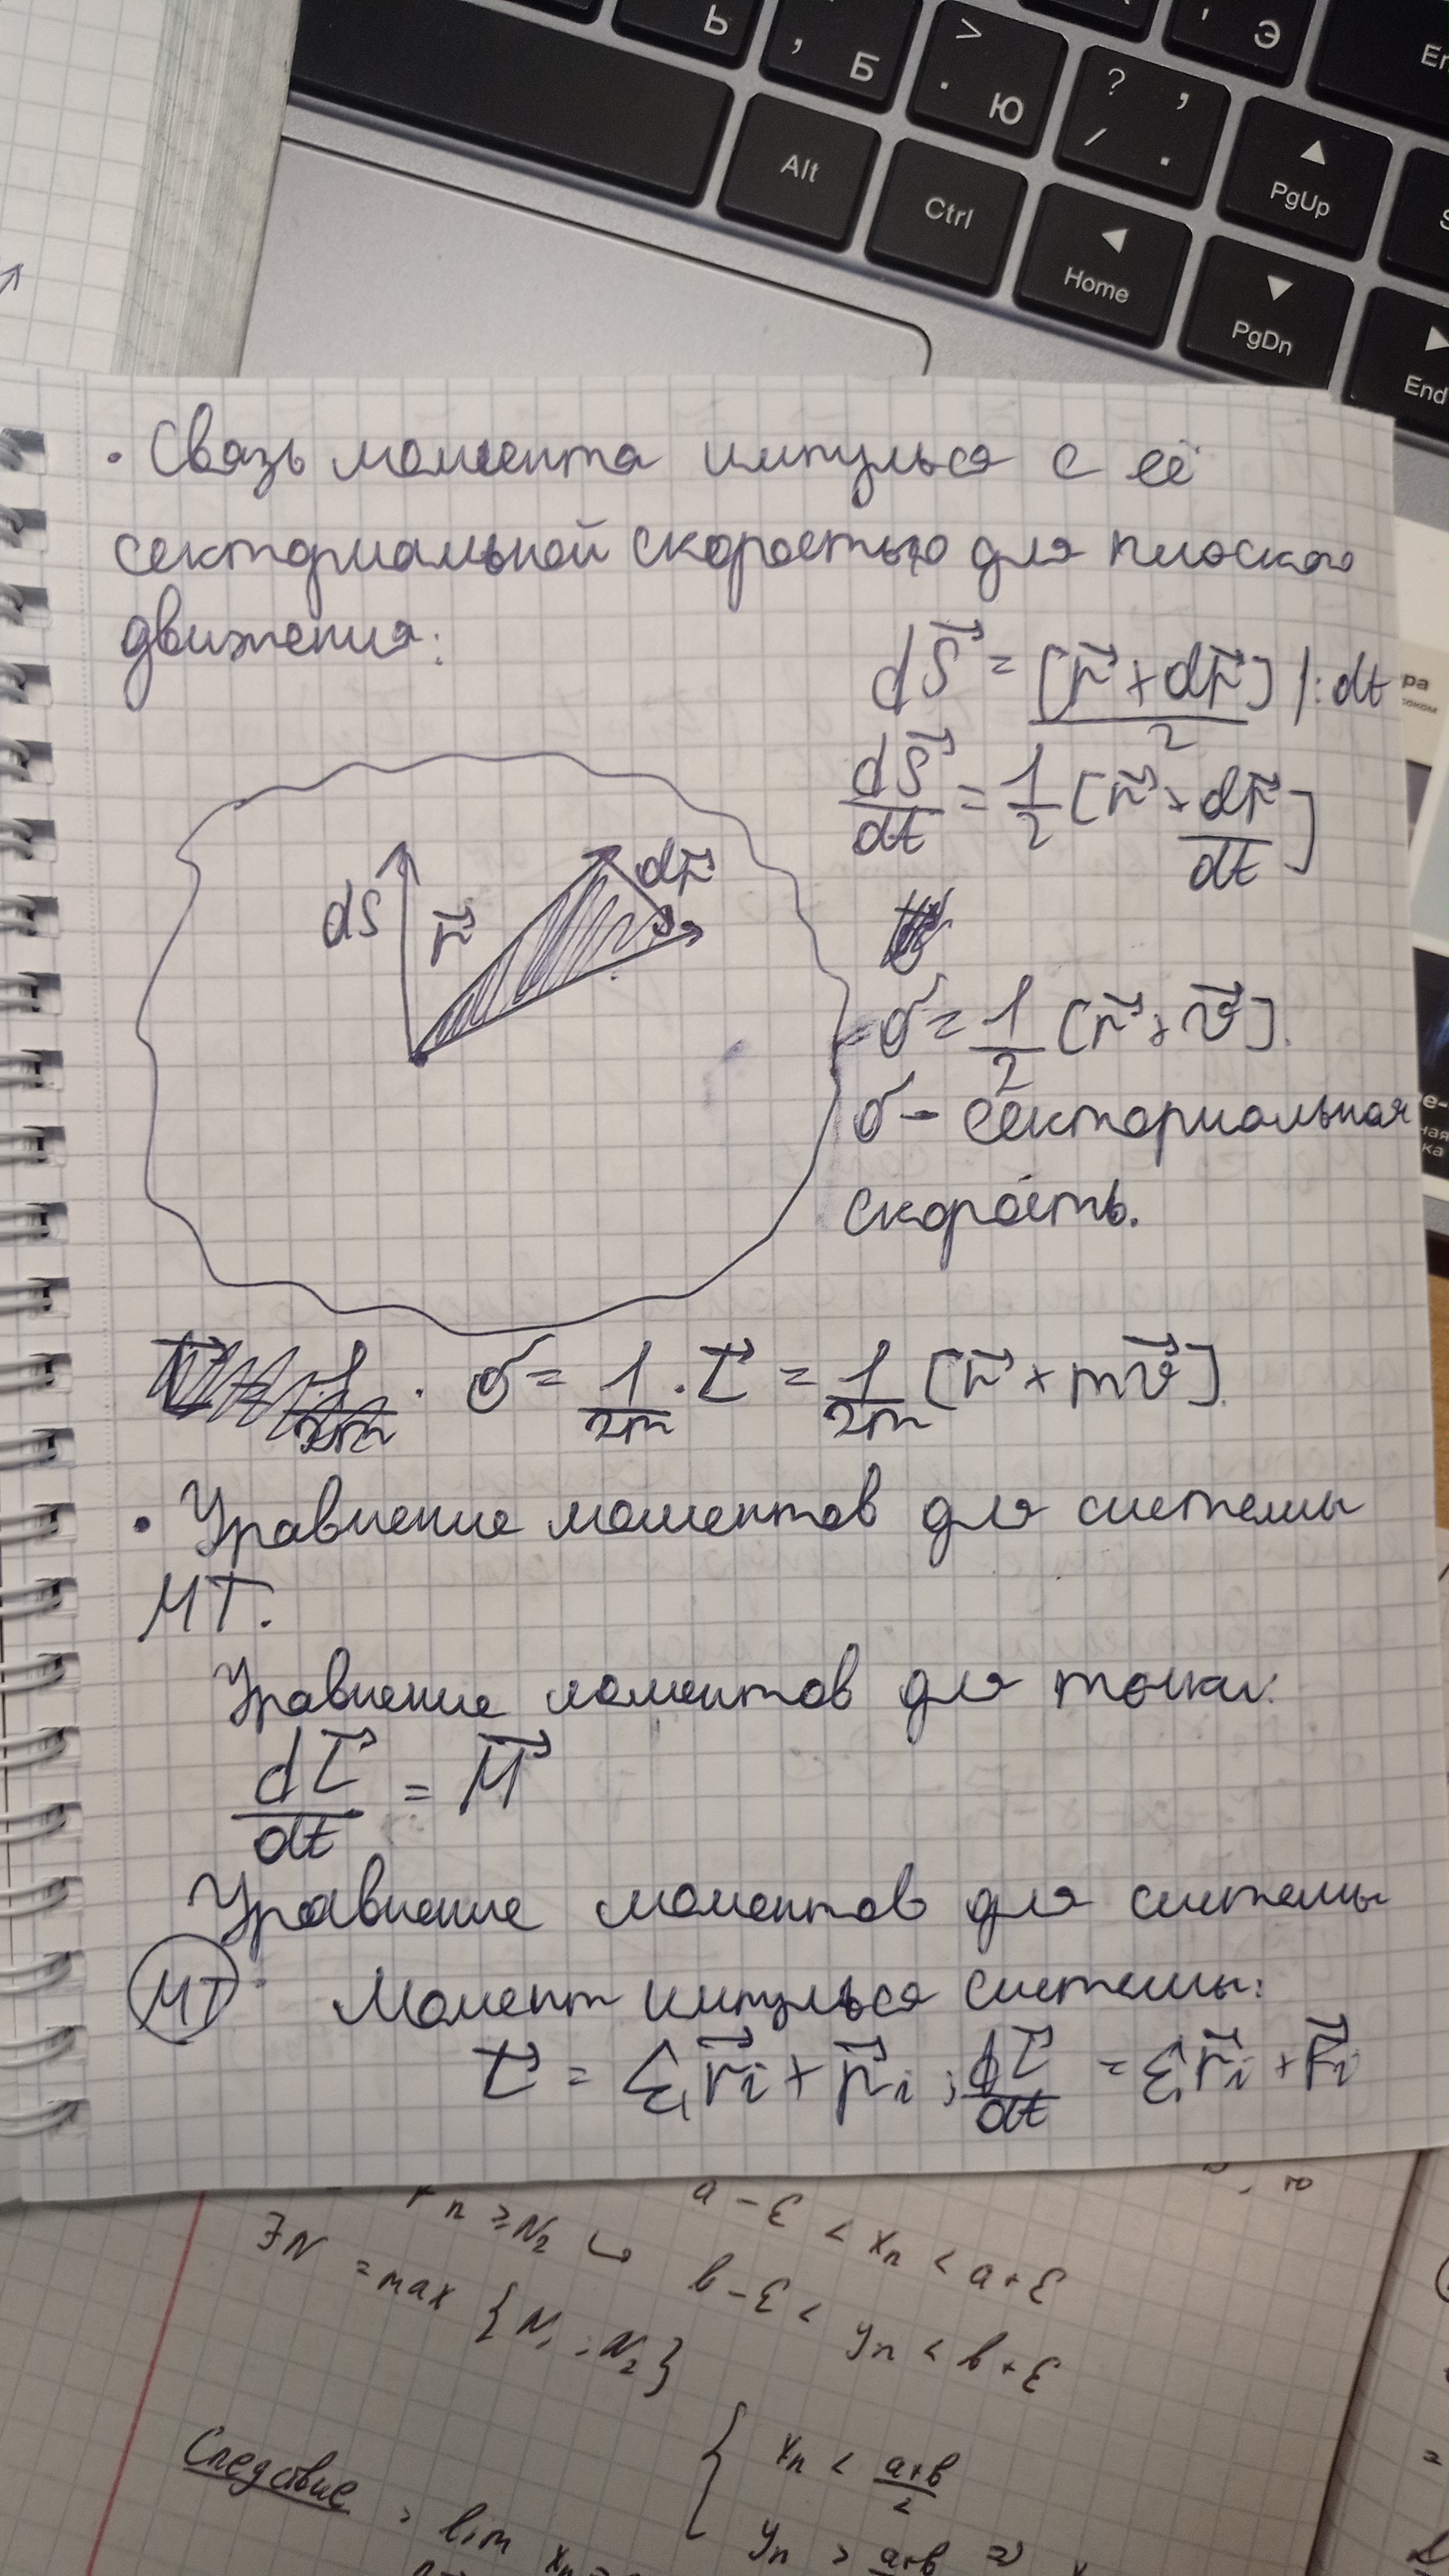 ь
, Б
> . Ю
? , / .
' Э
Alt
Ctrl
Home
PgUp
PgDn
End
• Связь момента импульса с её
секториальной скоростью для плоского
движения:
dS⃗ = [r⃗ × dr⃗]/2 |: dt
dS⃗/dt = 1/2 [r⃗ × dr⃗/dt]
dS
r⃗
dr⃗
σ = 1/2 [r⃗ × v⃗].
σ - секториальная
скорость.
σ = 1/2m · L⃗ = 1/2m [r⃗ × mv⃗].
• Уравнение моментов для системы
МТ.
Уравнение моментов для точки:
dL⃗/dt = M⃗
Уравнение моментов для системы
МТ: Момент импульса системы:
L⃗ = Σ r⃗i × p⃗i ; dL⃗/dt = Σ r⃗i × F⃗i
n ≥ N₂ ↪ a - ε < xn < a + ε
∃N = max {N₁ ; N₂} b - ε < yn < b + ε
Следствие: lim xn
xn < a+b/2
yn > a+b/2 ⇒